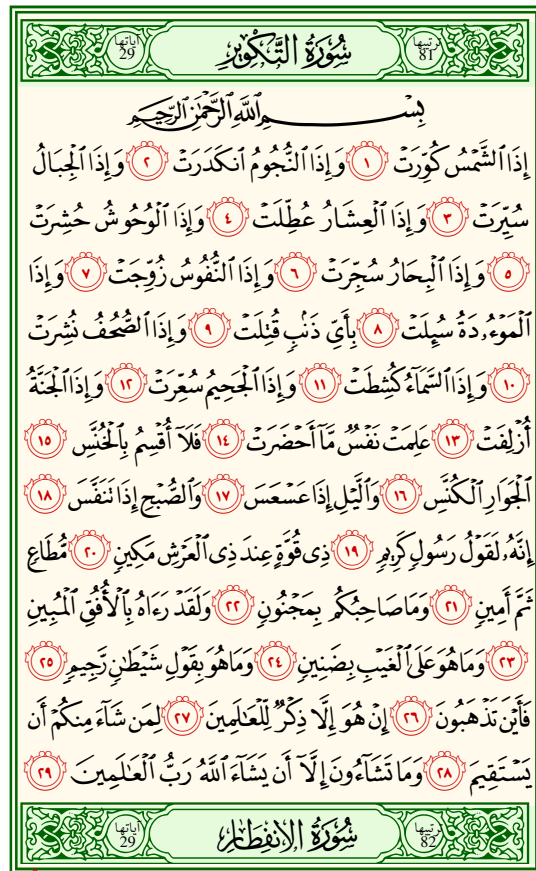 ترتيبها 81 سُورَةُ التَّكْوِيرِ آياتها 29
بِسْمِ ٱللَّهِ ٱلرَّحْمَٰنِ ٱلرَّحِيمِ
إِذَا ٱلشَّمْسُ كُوِّرَتْ ١ وَإِذَا ٱلنُّجُومُ ٱنكَدَرَتْ ٢ وَإِذَا ٱلْجِبَالُ
سُيِّرَتْ ٣ وَإِذَا ٱلْعِشَارُ عُطِّلَتْ ٤ وَإِذَا ٱلْوُحُوشُ حُشِرَتْ
٥ وَإِذَا ٱلْبِحَارُ سُجِّرَتْ ٦ وَإِذَا ٱلنُّفُوسُ زُوِّجَتْ ٧ وَإِذَا
ٱلْمَوْءُۥدَةُ سُئِلَتْ ٨ بِأَىِّ ذَنۢبٍ قُتِلَتْ ٩ وَإِذَا ٱلصُّحُفُ نُشِرَتْ
١٠ وَإِذَا ٱلسَّمَآءُ كُشِطَتْ ١١ وَإِذَا ٱلْجَحِيمُ سُعِّرَتْ ١٢ وَإِذَا ٱلْجَنَّةُ
أُزْلِفَتْ ١٣ عَلِمَتْ نَفْسٌ مَّآ أَحْضَرَتْ ١٤ فَلَآ أُقْسِمُ بِٱلْخُنَّسِ ١٥
ٱلْجَوَارِ ٱلْكُنَّسِ ١٦ وَٱلَّيْلِ إِذَا عَسْعَسَ ١٧ وَٱلصُّبْحِ إِذَا تَنَفَّسَ ١٨
إِنَّهُۥ لَقَوْلُ رَسُولٍ كَرِيمٍ ١٩ ذِى قُوَّةٍ عِندَ ذِى ٱلْعَرْشِ مَكِينٍ ٢٠ مُّطَاعٍ
ثَمَّ أَمِينٍ ٢١ وَمَا صَاحِبُكُم بِمَجْنُونٍ ٢٢ وَلَقَدْ رَءَاهُ بِٱلْأُفُقِ ٱلْمُبِينِ
٢٣ وَمَا هُوَ عَلَى ٱلْغَيْبِ بِضَنِينٍ ٢٤ وَمَا هُوَ بِقَوْلِ شَيْطَٰنٍ رَّجِيمٍ ٢٥
فَأَيْنَ تَذْهَبُونَ ٢٦ إِنْ هُوَ إِلَّا ذِكْرٌ لِّلْعَٰلَمِينَ ٢٧ لِمَن شَآءَ مِنكُمْ أَن
يَسْتَقِيمَ ٢٨ وَمَا تَشَآءُونَ إِلَّآ أَن يَشَآءَ ٱللَّهُ رَبُّ ٱلْعَٰلَمِينَ ٢٩
ترتيبها 82 سُورَةُ الانفِطَارِ آياتها 29